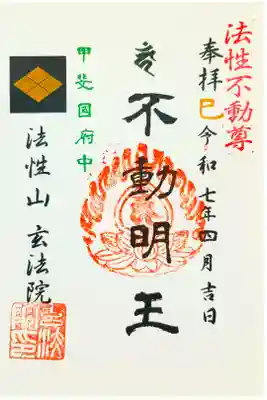 法性不動尊
奉拝 巳 令和七年四月吉日
不動明王
甲斐國府中
法性山 玄法院